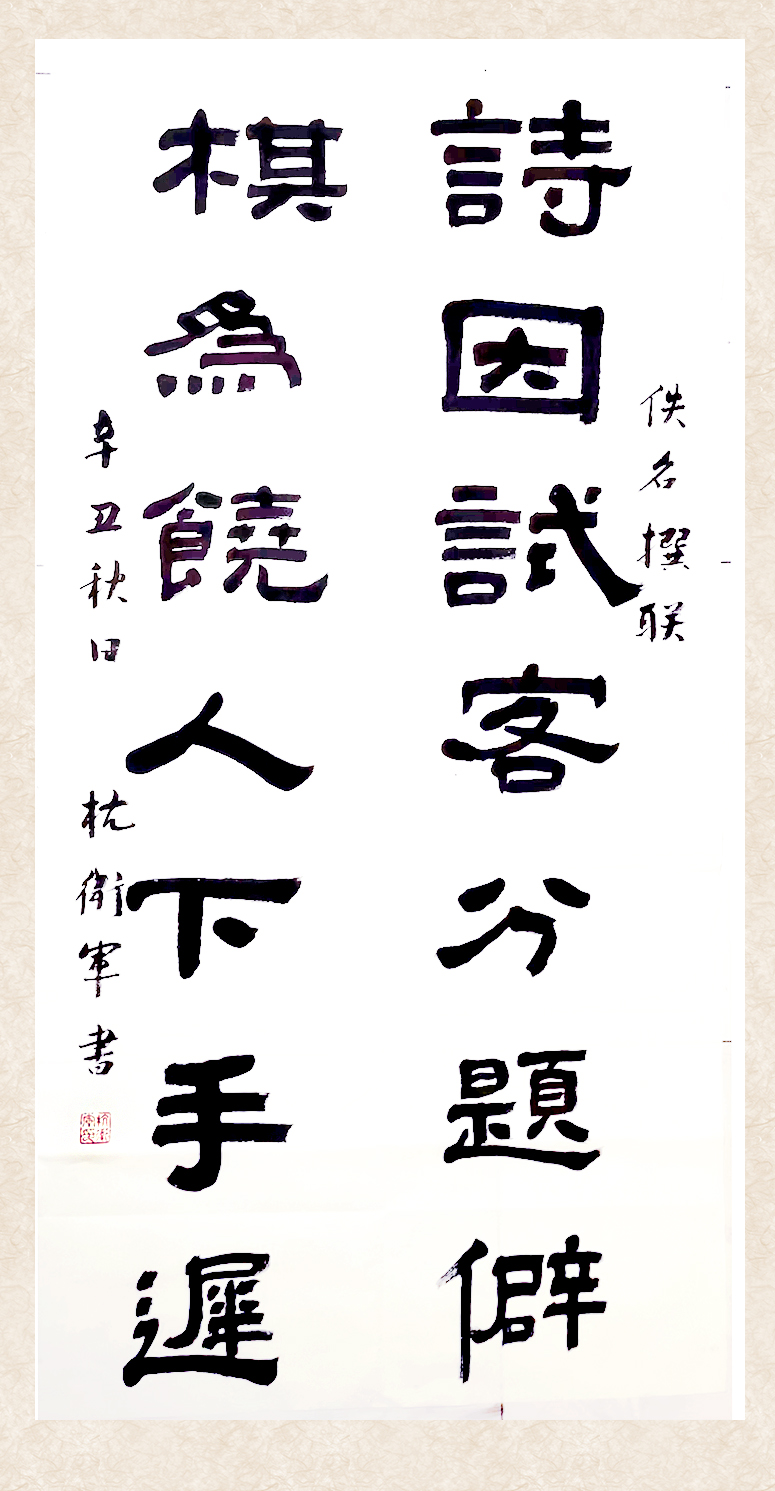 佚名撰联
詩因試客分題僻
棋為饒人下手遲
辛丑秋日 杭衛軍书